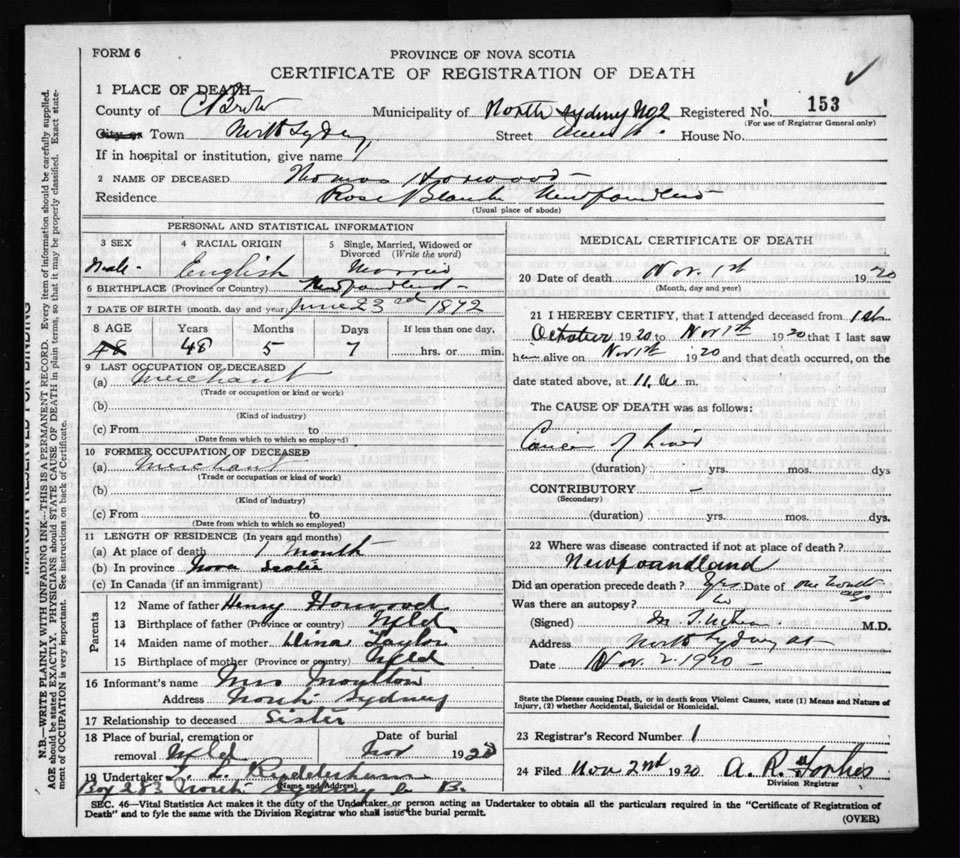 FORM 6
PROVINCE OF NOVA SCOTIA
CERTIFICATE OF REGISTRATION OF DEATH
1 PLACE OF DEATH
County of C Breton Municipality of North Sydney No2 Registered No. 153
(For use of Registrar General only)
City or Town North Sydney Street House No.
If in hospital or institution, give name
2 NAME OF DECEASED Thomas Horwood
Residence Rose Blanche Newfoundland
(Usual place of abode)
PERSONAL AND STATISTICAL INFORMATION
3 SEX 4 RACIAL ORIGIN 5 Single, Married, Widowed or Divorced (Write the word)
Male English Married
6 BIRTHPLACE (Province or Country) Newfoundland
7 DATE OF BIRTH (month, day and year) June 23rd 1872
8 AGE Years Months Days If less than one day,
48 48 5 7 hrs. or min.
9 LAST OCCUPATION OF DECEASED
(a) Merchant
(Trade or occupation or kind or work)
(b)
(Kind of industry)
(c) From to
(Date from which to which so employed)
10 FORMER OCCUPATION OF DECEASED
(a) Merchant
(Trade or occupation or kind of work)
(b)
(Kind of industry)
(c) From to
(Date from which to which so employed)
11 LENGTH OF RESIDENCE (In years and months)
(a) At place of death 1 month
(b) In province Nova Scotia
(c) In Canada (if an immigrant)
Parents
12 Name of father Henry Horwood
13 Birthplace of father (Province or country) Nfld
14 Maiden name of mother Dina Taylor
15 Birthplace of mother (Province or country) Nfld
16 Informant's name Mrs Moulton
Address North Sydney
17 Relationship to deceased Sister
18 Place of burial, cremation or removal Nfld Date of burial Nov 1920
19 Undertaker
(Name and Address)
Box 283 North Sydney C. B.
MEDICAL CERTIFICATE OF DEATH
20 Date of death Nov. 1st 1920
(Month, day and year)
21 I HEREBY CERTIFY, that I attended deceased from 1st
October 1920 to Nov 1st 1920 that I last saw
him alive on Nov 1st 1920 and that death occurred, on the
date stated above, at 11 a m.
The CAUSE OF DEATH was as follows:
Cancer of Liver
(duration) yrs. mos. dys
CONTRIBUTORY —
(Secondary)
(duration) yrs. mos. dys.
22 Where was disease contracted if not at place of death?
Newfoundland
Did an operation precede death? Yes Date of one month ago
Was there an autopsy? No
(Signed) M.D.
Address North Sydney
Date Nov. 2. 1920
State the Disease causing Death, or in death from Violent Causes, state (1) Means and Nature of
Injury, (2) whether Accidental, Suicidal or Homicidal.
23 Registrar's Record Number 1
24 Filed Nov 2nd 1920 A. R. Forbes
Division Registrar
SEC. 46—Vital Statistics Act makes it the duty of the Undertaker or person acting as Undertaker to obtain all the particulars required in the "Certificate of Registration of
Death" and to fyle the same with the Division Registrar who shall issue the burial permit.
(OVER)
MARGIN RESERVED FOR BINDING
N.B.—WRITE PLAINLY WITH UNFADING INK—THIS IS A PERMANENT RECORD. Every item of information should be carefully supplied.
AGE should be stated EXACTLY. PHYSICIANS should STATE CAUSE OF DEATH in plain terms, so that it may be properly classified. Exact state-
ment of OCCUPATION is very important. See instructions on back of Certificate.